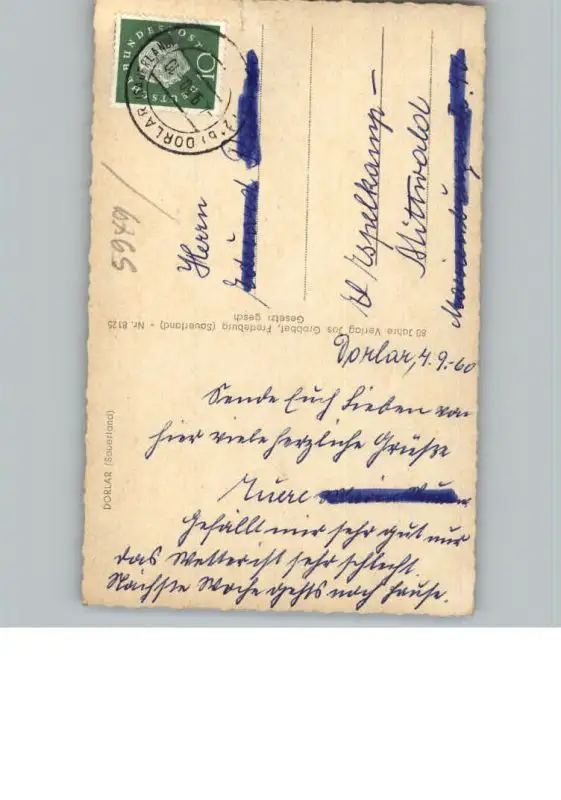 DEUTSCHE BUNDESPOST
10
DORLAR (SAUERLAND)
5949
Herrn
Espelkamp-
Mittwald
80 Jahre Verlag Jos Grobbel, Fredeburg (Sauerland) - Nr. 8125
Gesetzl gesch
DORLAR (Sauerland)
Dorlar, 4.9.60
Sende Euch Lieben von
hier viele herzliche Grüße
Euere
Gefällt mir sehr gut nur
das Wetter ist sehr schlecht.
Nächste Woche gehts nach Hause.